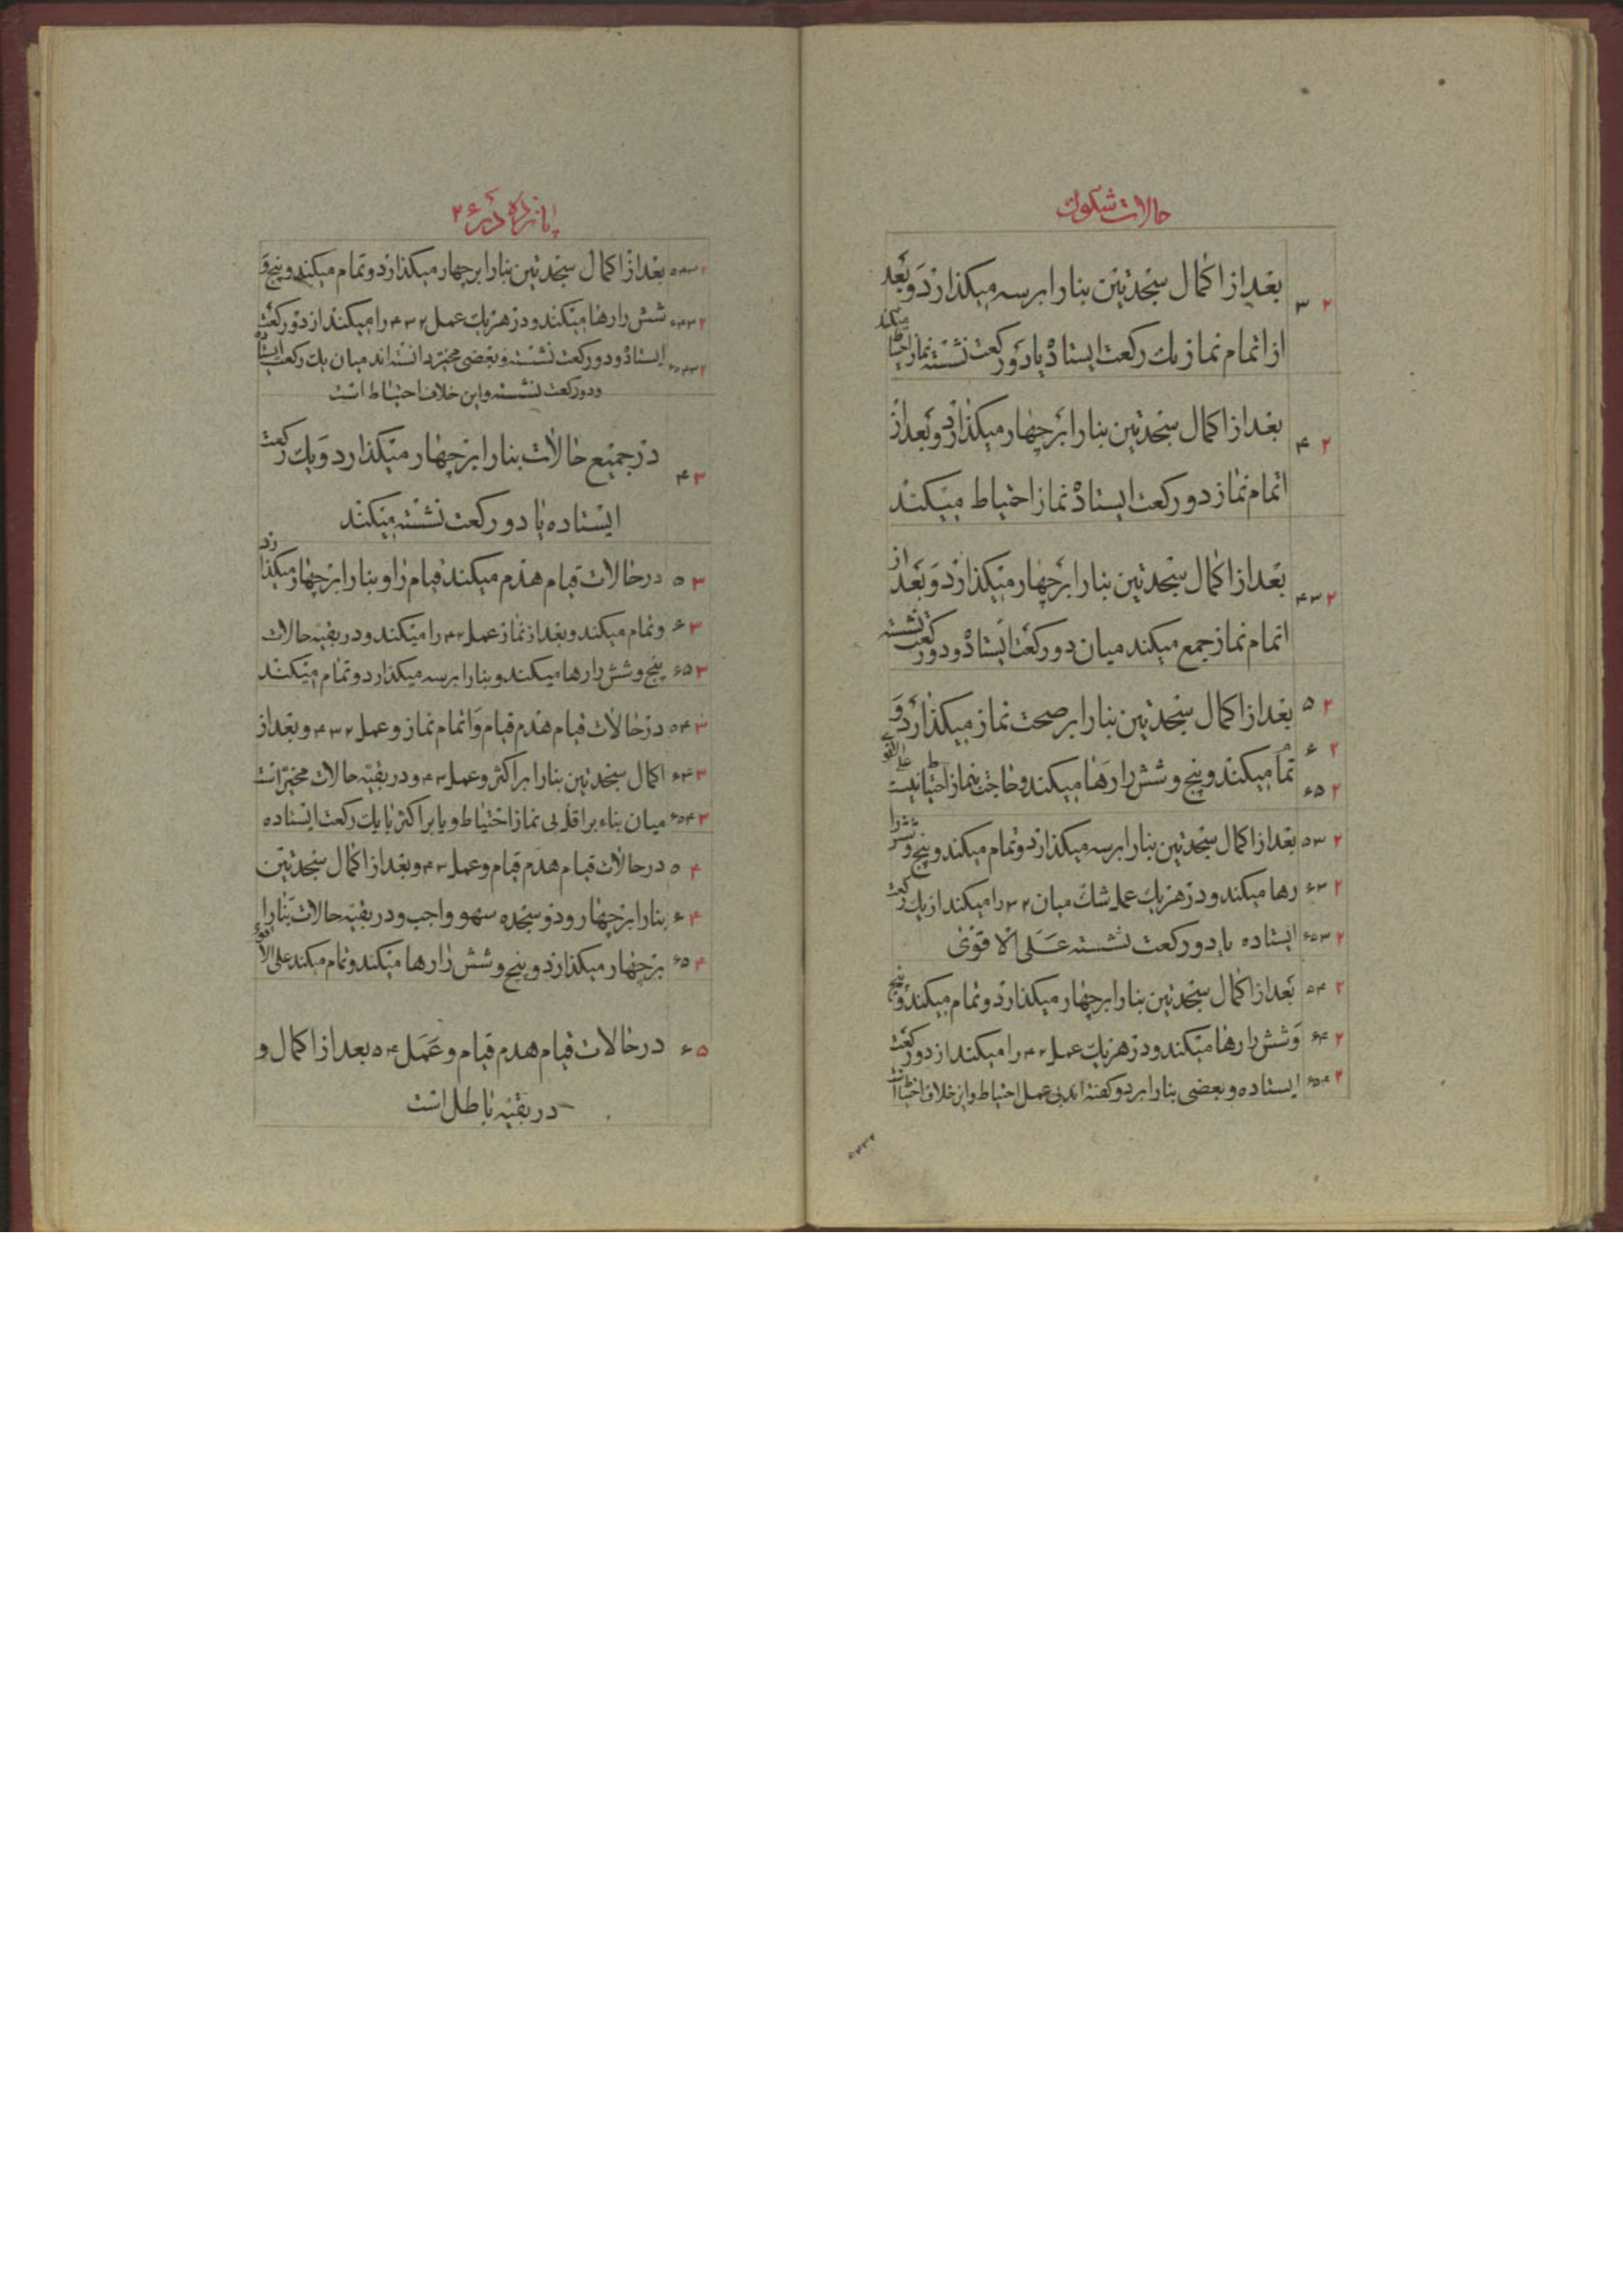 حالات شكوك
۲ ۳ بعد از اکمال سجدتین بنا را بر سه میکذارد و بعد
از اتمام نماز یك رکعت ایستاده یا دو رکعت نشسته نماز احتیاط میکند
۲ ۴ بعد از اکمال سجدتین بنا را بر چهار میکذارد و بعد از
اتمام نماز دو رکعت ایستاده نماز احتیاط میکند
۲ ۳ ۴ بعد از اکمال سجدتین بنا را بر چهار میکذارد و بعد از
اتمام نماز جمع میکند میان دو رکعت ایستاده و دو رکعت نشسته
۲ ۵ بعد از اکمال سجدتین بنا را بر صحت نماز میکذارد و
۲ ۶ تمام میکند و پنج و شش را رها میکند و حاجت بنماز احتیاط نیست علی الاقوی
۲ ۵ ۶
۲ ۳ ۵ بعد از اکمال سجدتین بنا را بر سه میکذارد و تمام میکند و پنج و شش را
۲ ۳ ۶ رها میکند و در هر یك عمل شك میان ۲ ۳ را میکند از یك رکعت
۲ ۳ ۵ ۶ ایستاده یا دو رکعت نشسته عَلَی الاقوی
۲ ۴ ۵ بعد از اکمال سجدتین بنا را بر چهار میکذارد و تمام میکند و پنج
۲ ۴ ۶ و شش را رها میکند و در هر یك عمل ۲ ۴ را میکند از دو رکعت
۲ ۴ ۵ ۶ ایستاده و بعضی بنا را بر دو کفته اند بی عمل احتیاط و این خلاف احتیاط است
۲ ۳ ۴ ۵
پانزده در ۲۶
۲ ۳ ۴ ۵ بعد از اکمال سجدتین بنا را بر چهار میکذارد و تمام میکند و پنج و
۲ ۳ ۴ ۶ شش را رها میکند و در هر یك عمل ۲ ۳ ۴ را میکند از دو رکعت
۲ ۳ ۴ ۵ ۶ ایستاده و دو رکعت نشسته و بعضی مخیر دانسته اند میان یك رکعت ایستاده
و دو رکعت نشسته و این خلاف احتیاط است
۳ ۴ در جمیع حالات بنا را بر چهار میکذارد و یك رکعت
ایستاده یا دو رکعت نشسته میکند
۳ ۵ در حالات قیام هدم میکند قیام را و بنا را بر چهار میکذارد
۳ ۶ و تمام میکند و بعد از نماز عمل ۲ ۴ را میکند و در بقیه حالات
۳ ۵ ۶ پنج و شش را رها میکند و بنا را بر سه میکذارد و تمام میکند
۳ ۴ ۵ در حالات قیام هدم قیام و اتمام نماز و عمل ۲ ۳ ۴ و بعد از
۳ ۴ ۶ اکمال سجدتین بنا را بر اکثر و عمل ۳ ۴ و در بقیه حالات مخیر است
۳ ۴ ۵ ۶ میان بناء بر اقل بی نماز احتیاط و یا بر اکثر با یك رکعت ایستاده
۴ ۵ در حالات قیام هدم قیام و عمل ۳ ۴ و بعد از اکمال سجدتین
۴ ۶ بنا را بر چهار و دو سجده سهو واجب و در بقیه حالات بنا را
۴ ۵ ۶ بر چهار میکذارد و پنج و شش را رها میکند و تمام میکند علی الاقوی
۵ ۶ در حالات قیام هدم قیام و عَمَل ۴ ۵ بعد از اکمال و
در بقیه باطل است